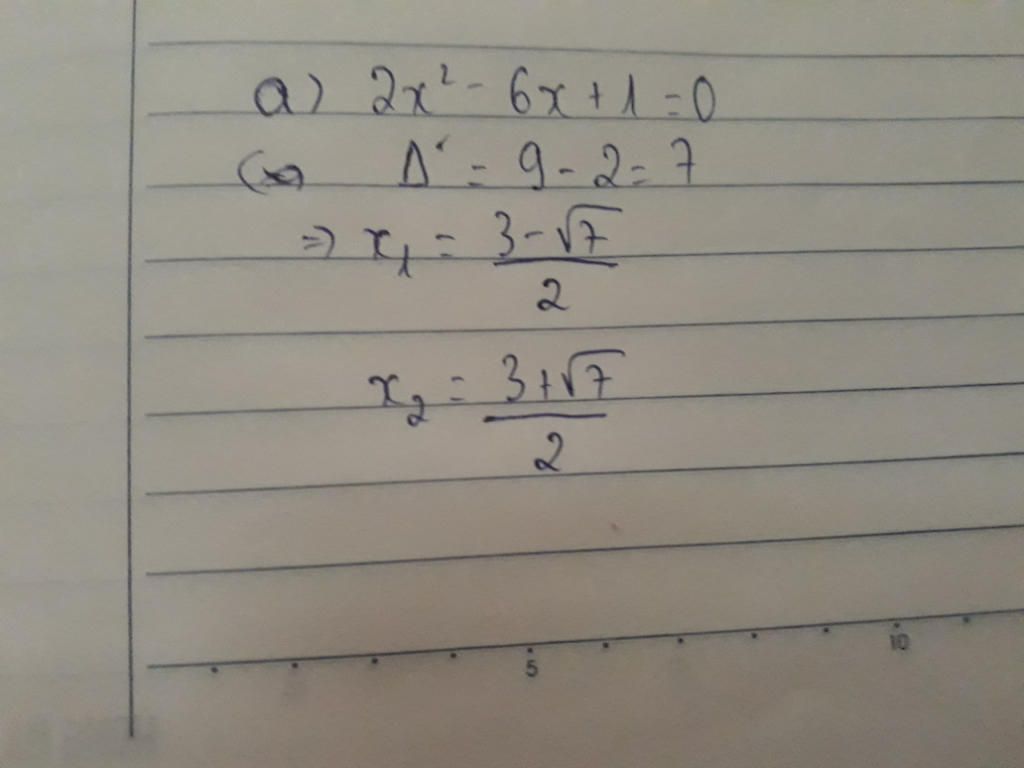 a) 2x² - 6x + 1 = 0
Δ' = 9 - 2 = 7
=> x₁ = (3 - √7)/2
x₂ = (3 + √7)/2
5 10